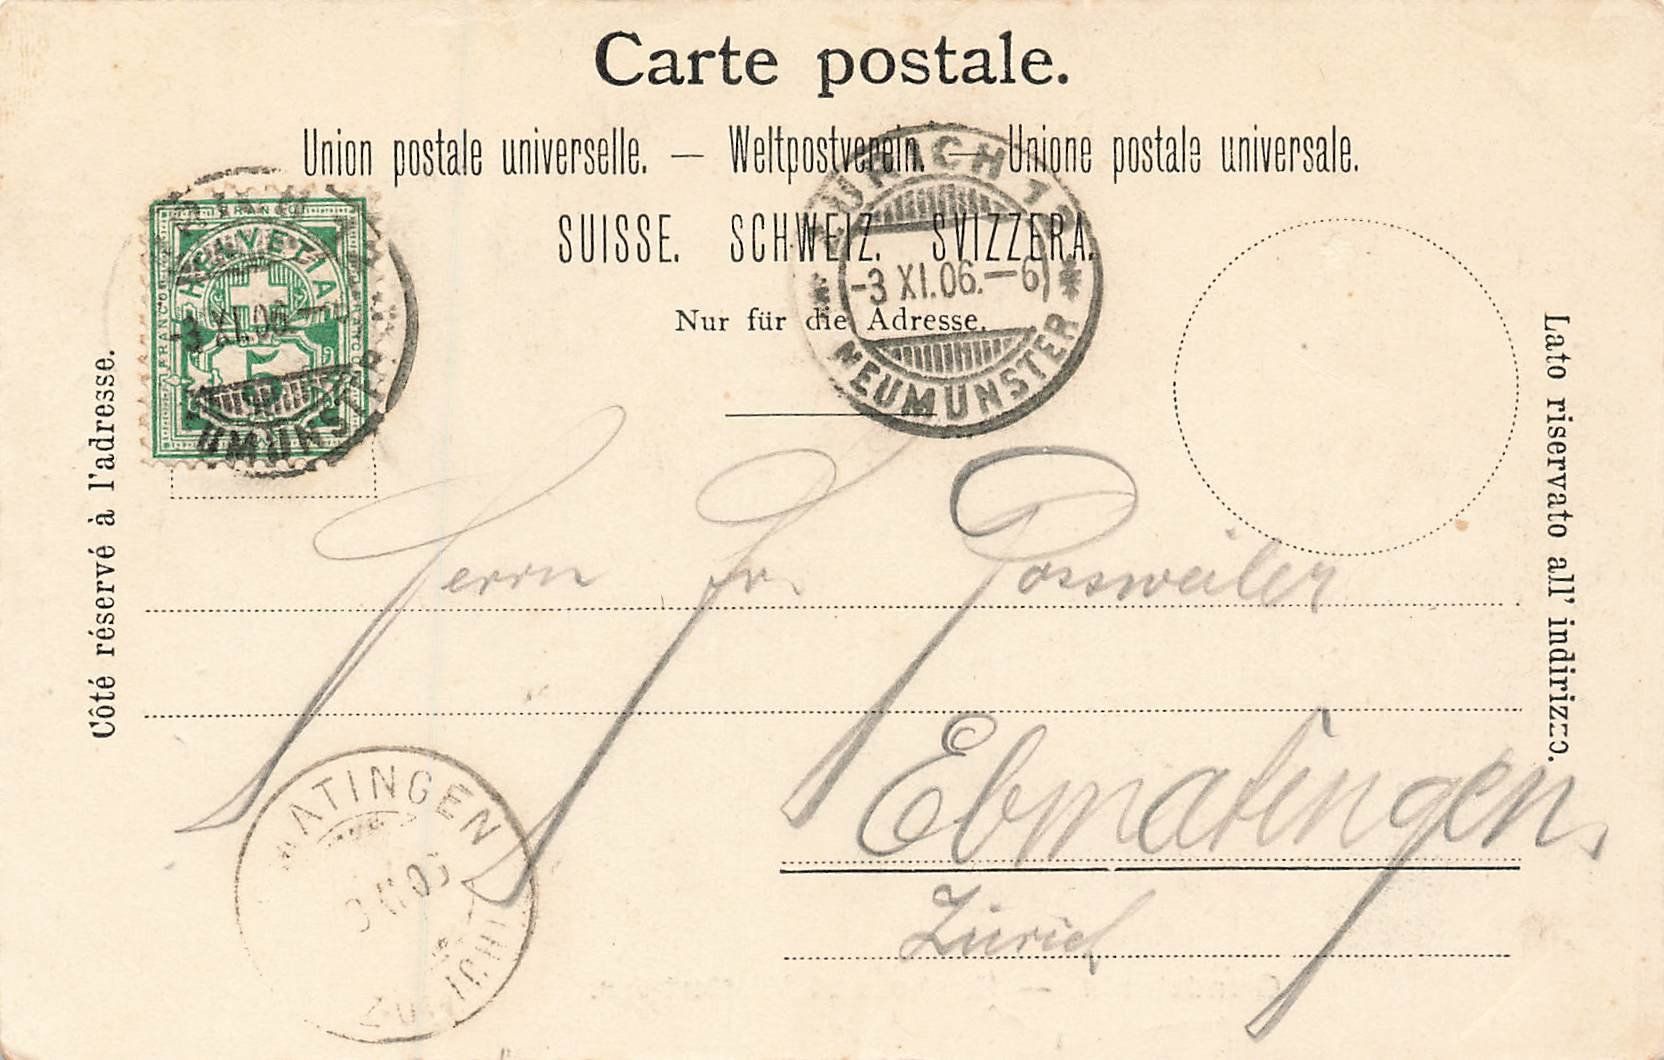 Carte postale.
Union postale universelle. — Weltpostverein. — Unione postale universale.
SUISSE. SCHWEIZ. SVIZZERA.
Nur für die Adresse.
Côté réservé à l'adresse.
Lato riservato all' indirizzo.
FRANCO
HELVETIA
5
-3 XI.06.
UMÜNSTER
ZÜRICH 12
-3 XI.06.—6
NEUMÜNSTER
Herrn Fr. Bossweiler
Ebmatingen
Zürich
MATINGEN